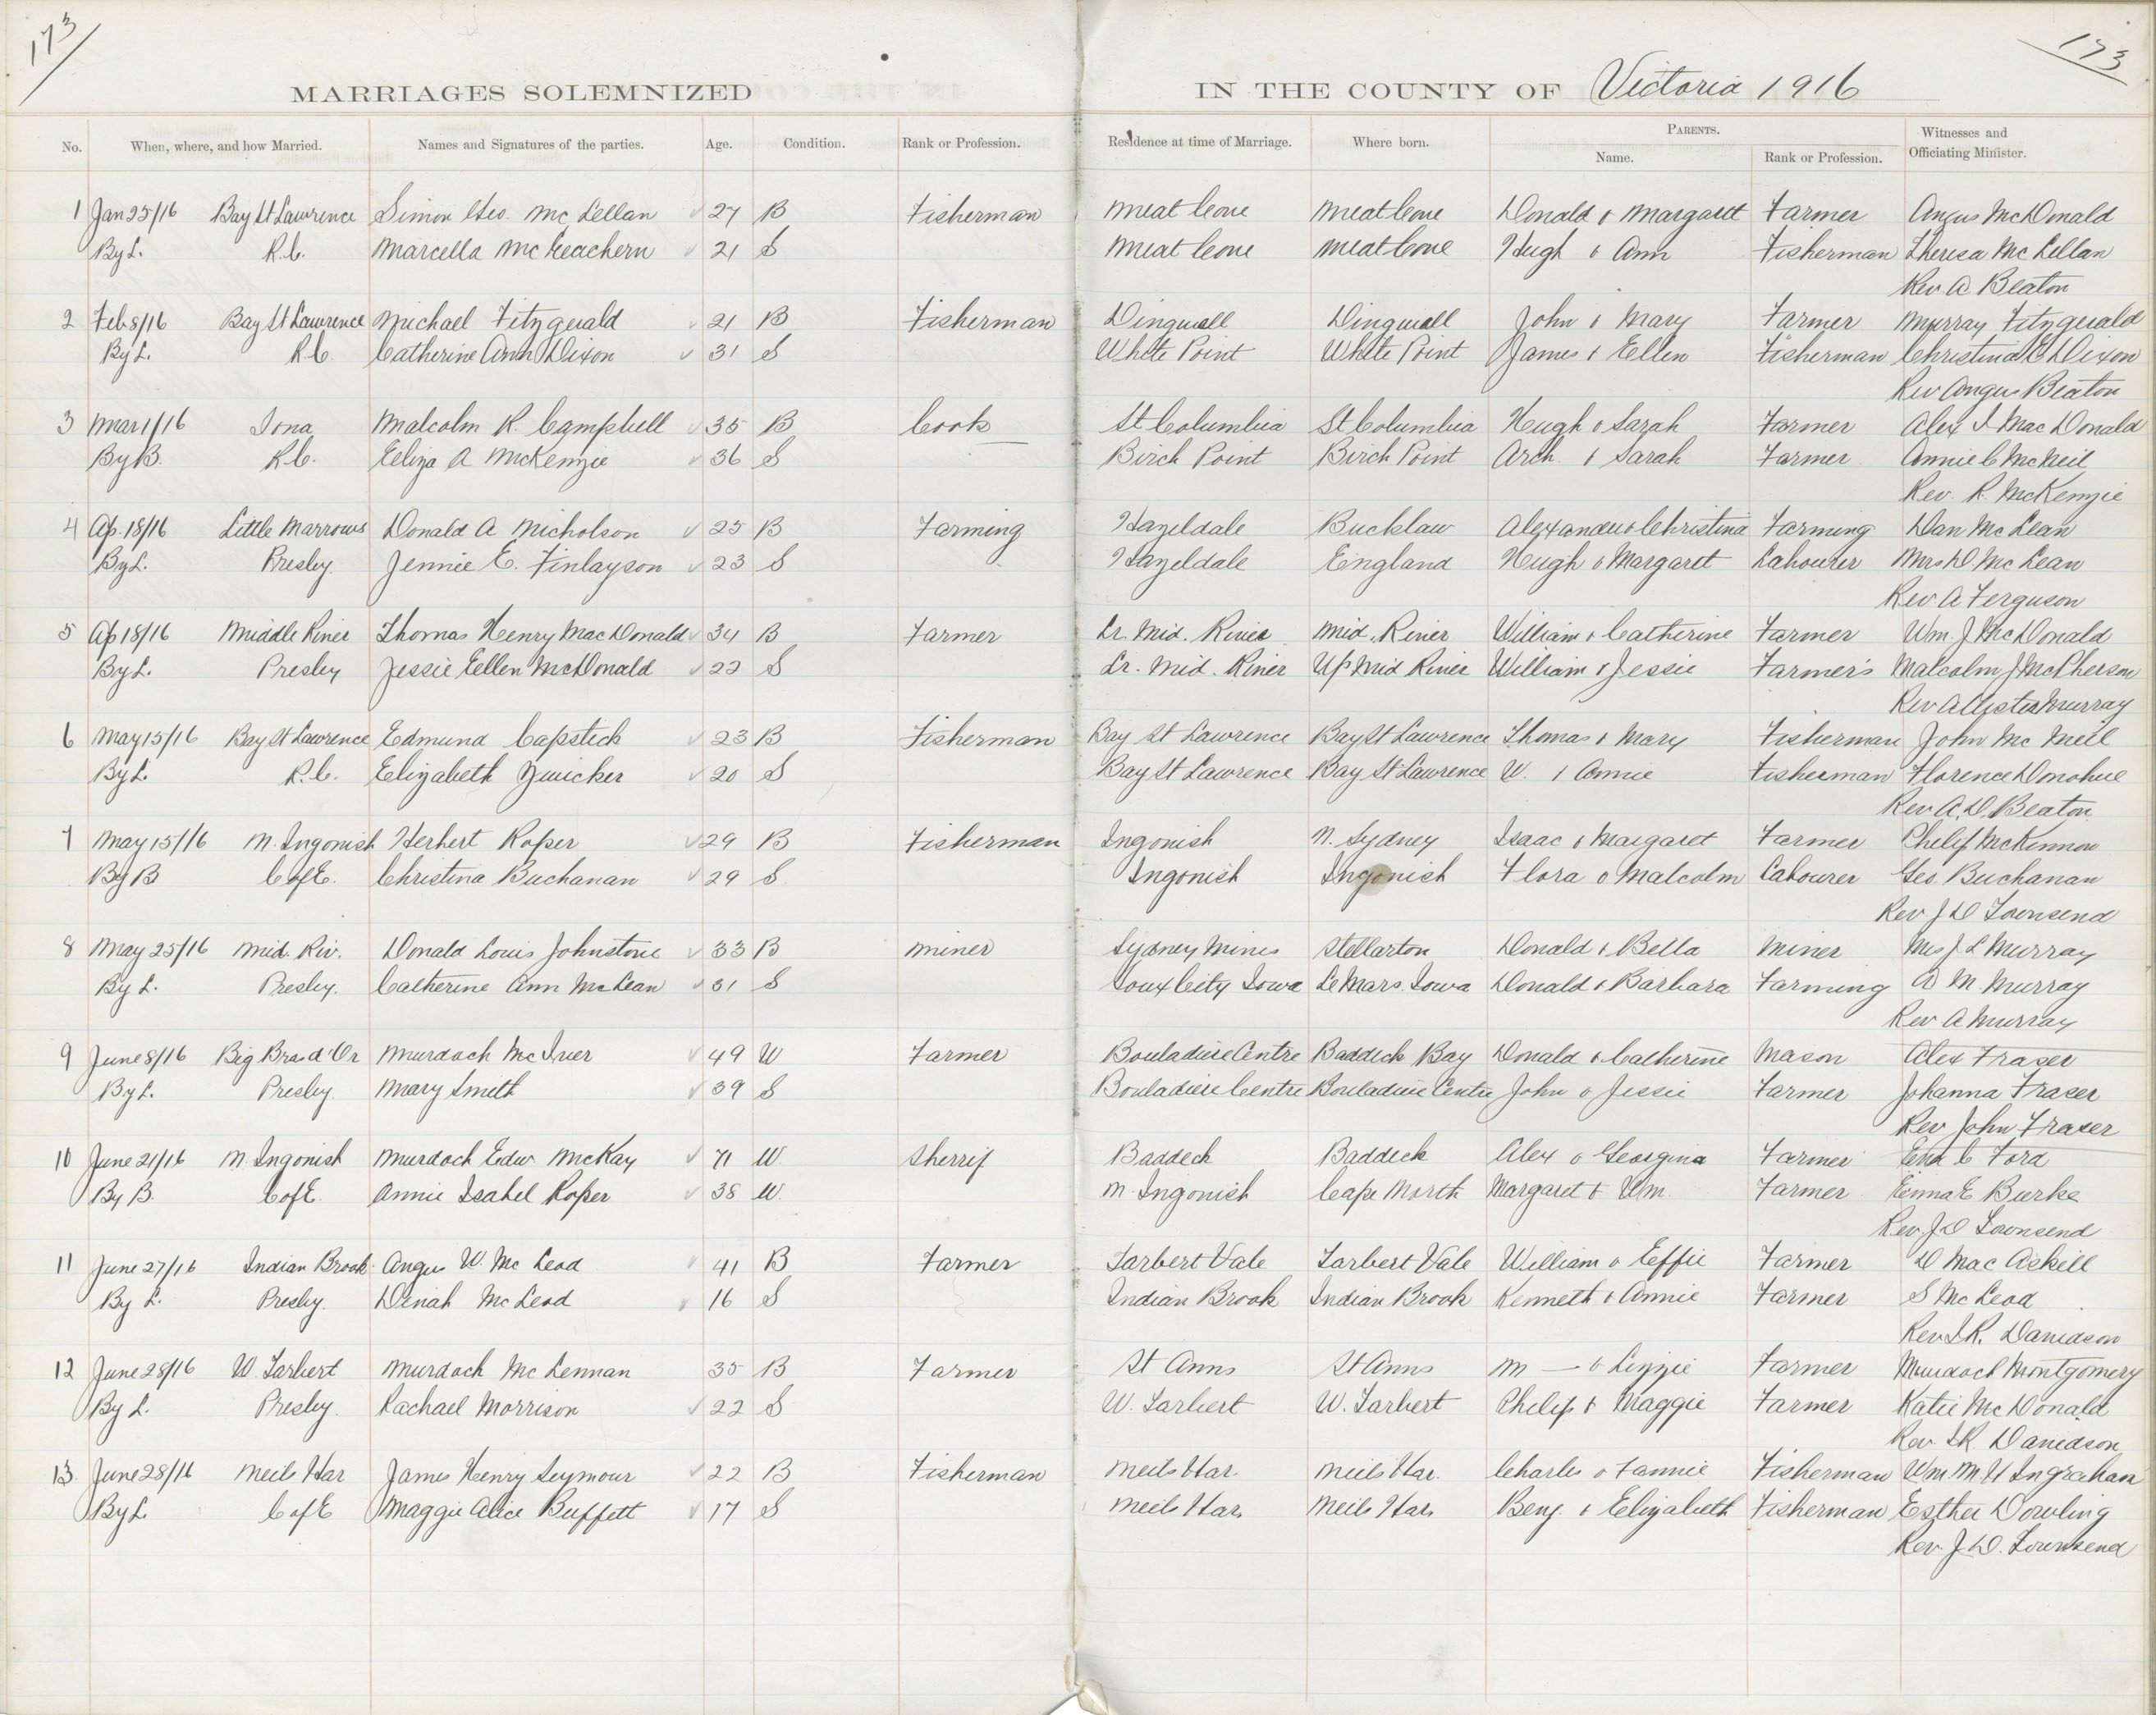 173 173
MARRIAGES SOLEMNIZED IN THE COUNTY OF Victoria 1916
No. When, where, and how Married. Names and Signatures of the parties. Age. Condition. Rank or Profession. Residence at time of Marriage. Where born. PARENTS. Name. Rank or Profession. Witnesses and Officiating Minister.
1 Jan 25/16 Bay St Lawrence Simon Geo. McLellan 27 B Fisherman Meat Cove Meat Cove Donald & Margaret Farmer Angus McDonald
By L. R.C. Marcella McEachern 21 S Meat Cove Meat Cove Hugh & Ann Fisherman Theresa McLellan
Rev A Beaton
2 Feb 8/16 Bay St Lawrence Michael Fitzgerald 21 B Fisherman Dingwall Dingwall John & Mary Farmer Murray Fitzgerald
By L. R.C. Catherine Ann Dixon 31 S White Point White Point James & Ellen Fisherman Christina Dixon
Rev Angus Beaton
3 Mar 1/16 Iona Malcolm R. Campbell 35 B Cook St Columbia St Columbia Hugh & Sarah Farmer Alex J MacDonald
By B. R.C. Eliza A McKenzie 36 S Birch Point Birch Point Arch. & Sarah Farmer Annie C McNeil
Rev. R. McKenzie
4 Ap. 18/16 Little Narrows Donald A Nicholson 25 B Farming Hazeldale Bucklaw Alexander & Christina Farming Dan McLean
By L. Presby. Jennie E. Finlayson 23 S Hazeldale England Hugh & Margaret Labourer Mrs D. McLean
Rev A Ferguson
5 Ap 18/16 Middle River Thomas Henry MacDonald 34 B Farmer Lr. Mid. River Mid. River William & Catherine Farmer Wm. J McDonald
By L. Presby Jessie Ellen McDonald 22 S Lr. Mid. River Up Mid River William & Jessie Farmer's Malcolm J McPherson
Rev Allister Murray
6 May 15/16 Bay St Lawrence Edmund Capstick 23 B Fisherman Bay St Lawrence Bay St Lawrence Thomas & Mary Fisherman John McNeil
By L. R.C. Elizabeth Zwicker 20 S Bay St Lawrence Bay St Lawrence W. & Annie Fisherman Florence Donohue
Rev A. D. Beaton
7 May 15/16 N. Ingonish Herbert Roper 29 B Fisherman Ingonish N. Sydney Isaac & Margaret Farmer Philip McKinnon
By B C of E. Christina Buchanan 29 S. Ingonish Ingonish Flora & Malcolm Labourer Geo Buchanan
Rev J D Townsend
8 May 25/16 Mid. Riv. Donald Louis Johnstone 33 B Miner Sydney Mines Stellarton Donald & Bella Miner Mrs J. L Murray
By L. Presby. Catherine Ann McLean 31 S Soux City Iowa Le Mars. Iowa Donald & Barbara Farming A M. Murray
Rev A Murray
9 June 8/16 Big Bras d'Or Murdoch McIver 49 W Farmer Bouladiere Centre Baddeck Bay Donald & Catherine Mason Alex Fraser
By L. Presby. Mary Smith 39 S Bouladiere Centre Bouladiere Centre John & Jessie Farmer Johanna Fraser
Rev John Fraser
10 June 21/16 N. Ingonish Murdoch Edw McKay 71 W. Sherrif Baddeck Baddeck Alex & Georgina Farmer C Ford
By B. C of E. Annie Isabel Roper 38 W. N. Ingonish Cape North Margaret & Wm. Farmer E Burke
Rev J D Townsend
11 June 27/16 Indian Brook Angus W. McLeod 41 B Farmer Tarbert Vale Tarbert Vale William & Effie Farmer D MacAskill
By L. Presby. Dinah McLeod 16 S Indian Brook Indian Brook Kenneth & Annie Farmer S McLeod
Rev. Davidson
12 June 28/16 W Tarbert Murdoch McLennan 35 B Farmer St Anns St Anns M — & Lizzie Farmer Murdoch Montgomery
By L. Presby. Rachael Morrison 22 S W. Tarbert W. Tarbert Philip & Maggie Farmer Katie McDonald
Rev. Davidson
13. June 28/16 Neils Har James Henry Seymour 22 B Fisherman Neils Har. Neils Har. Charles & Fannie Fisherman Wm. M. H Ingraham
By L. C of E Maggie Alice Buffett 17 S Neils Har. Neils Har. Benj. & Elizabeth Fisherman Esther Dowling
Rev. J. D. Townsend